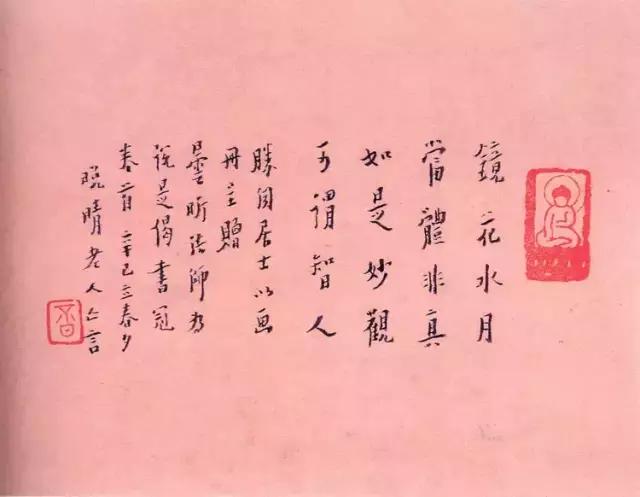 鏡花水月
當體非真
如是妙觀
可謂智人
勝閣居士以画
冊呈贈
曇昕法師為
說是偈書冠
卷首 辛巳立春夕
晚晴老人亡言